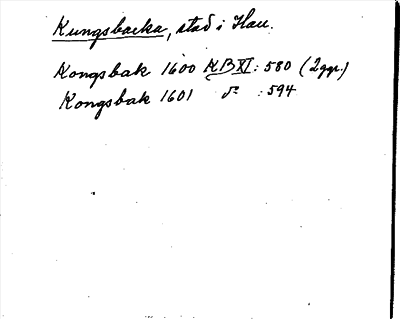 Kungsbacka, stad i Hall.
Kongsbak 1600 KB XI: 580 (2ggr.)
Kongsbak 1601 d:o : 594